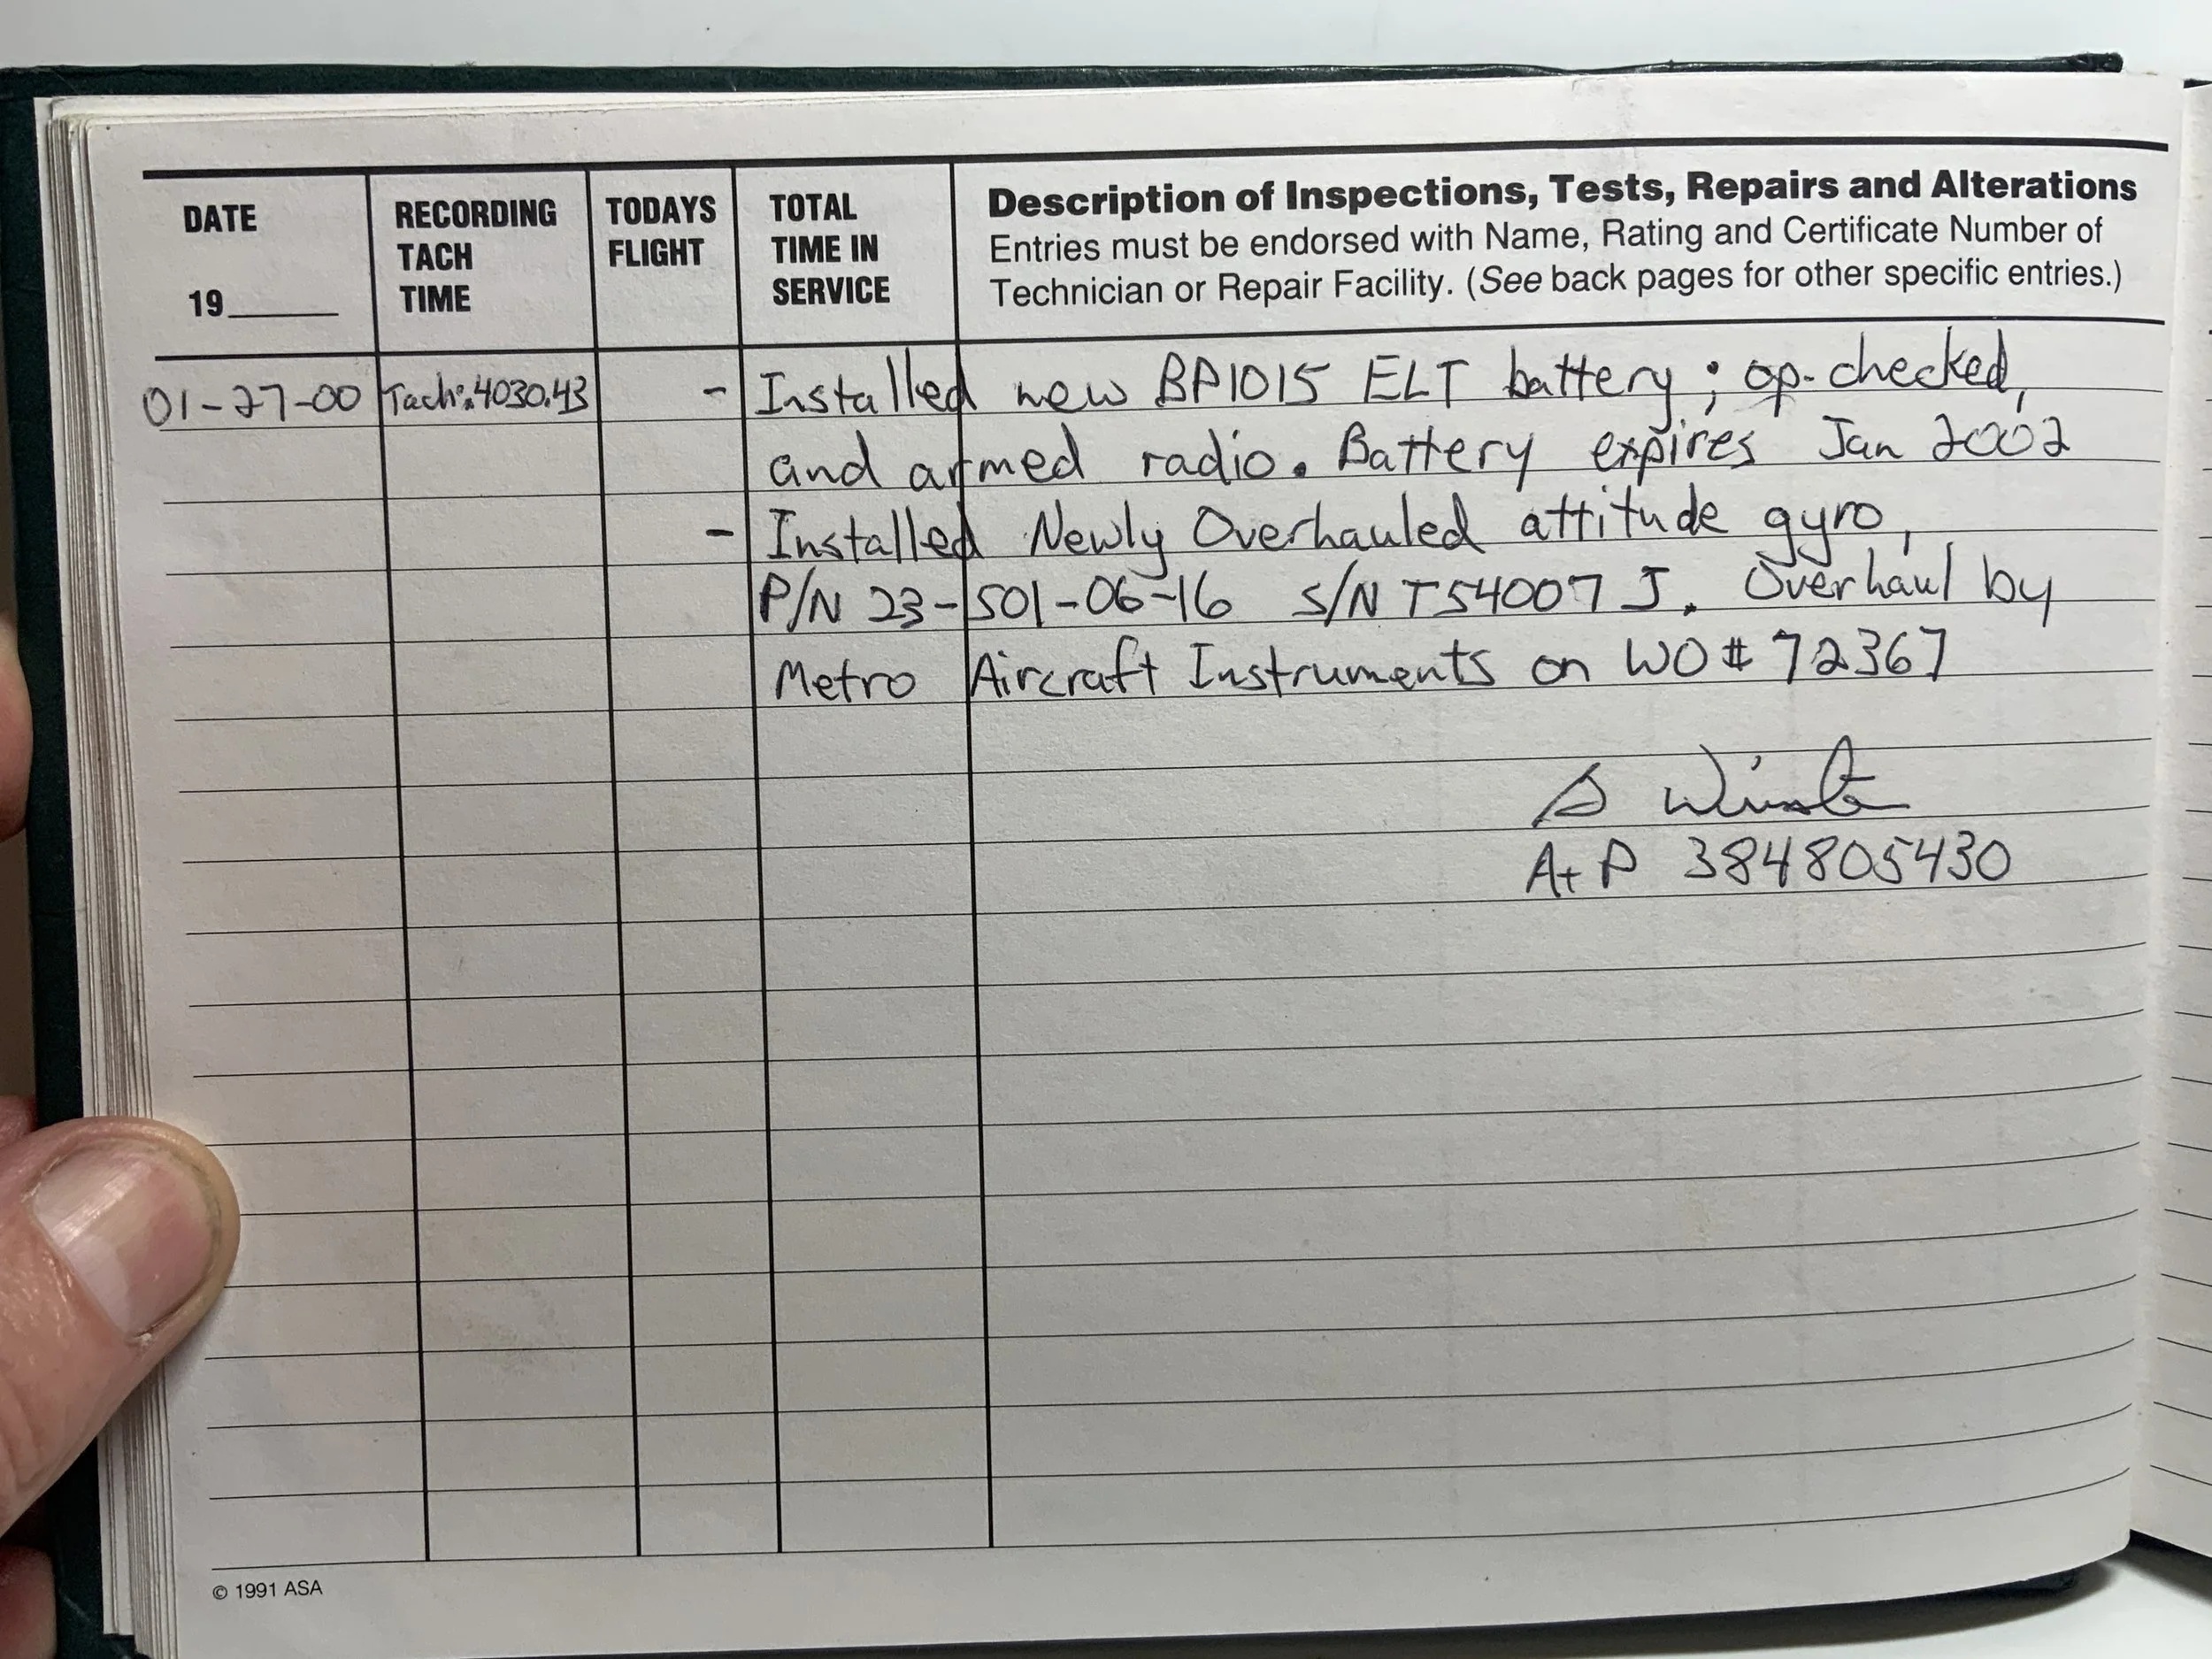 DATE
19
RECORDING
TACH
TIME
TODAYS
FLIGHT
TOTAL
TIME IN
SERVICE
Description of Inspections, Tests, Repairs and Alterations
Entries must be endorsed with Name, Rating and Certificate Number of
Technician or Repair Facility. (See back pages for other specific entries.)
01-27-00 Tach: 4030.43 - Installed new BP1015 ELT battery; op-checked,
and armed radio. Battery expires Jan 2002
- Installed Newly Overhauled attitude gyro,
P/N 23-501-06-16 S/N T54007J. Overhaul by
Metro Aircraft Instruments on WO# 72367
A+P 384805430
© 1991 ASA